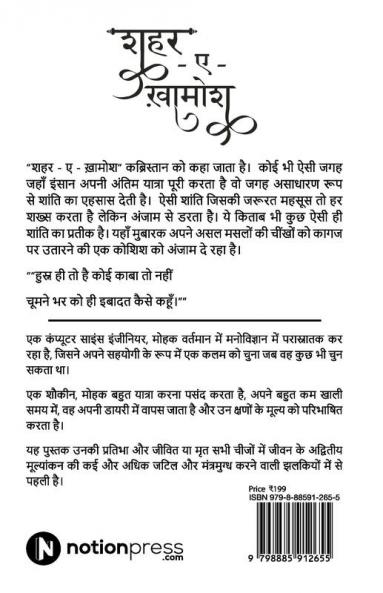 शहर
- ए -
ख़ामोश
“शहर - ए - ख़ामोश” कब्रिस्तान को कहा जाता है। कोई भी ऐसी जगह
जहाँ इंसान अपनी अंतिम यात्रा पूरी करता है वो जगह असाधारण रूप
से शांति का एहसास देती है। ऐसी शांति जिसकी जरूरत महसूस तो हर
शख्स करता है लेकिन अंजाम से डरता है। ये किताब भी कुछ ऐसी ही
शांति का प्रतीक है। यहाँ मुबारक अपने असल मसलों की चींखों को कागज
पर उतारने की एक कोशिश को अंजाम दे रहा है।
““हुस्न ही तो है कोई काबा तो नहीं
चूमने भर को ही इबादत कैसे कहूँ।””
एक कंप्यूटर साइंस इंजीनियर, मोहक वर्तमान में मनोविज्ञान में परास्नातक कर
रहा है, जिसने अपने सहयोगी के रूप में एक कलम को चुना जब वह कुछ भी चुन
सकता था।
एक शौकीन, मोहक बहुत यात्रा करना पसंद करता है, अपने बहुत कम खाली
समय में, वह अपनी डायरी में वापस जाता है और उन क्षणों के मूल्य को परिभाषित
करता है।
यह पुस्तक उनकी प्रतिभा और जीवित या मृत सभी चीजों में जीवन के अद्वितीय
मूल्यांकन की कई और अधिक जटिल और मंत्रमुग्ध करने वाली झलकियों में से
पहली है।
Price ₹199
ISBN 979-8-88591-265-5
9 798885 912655
N notionpress
.com